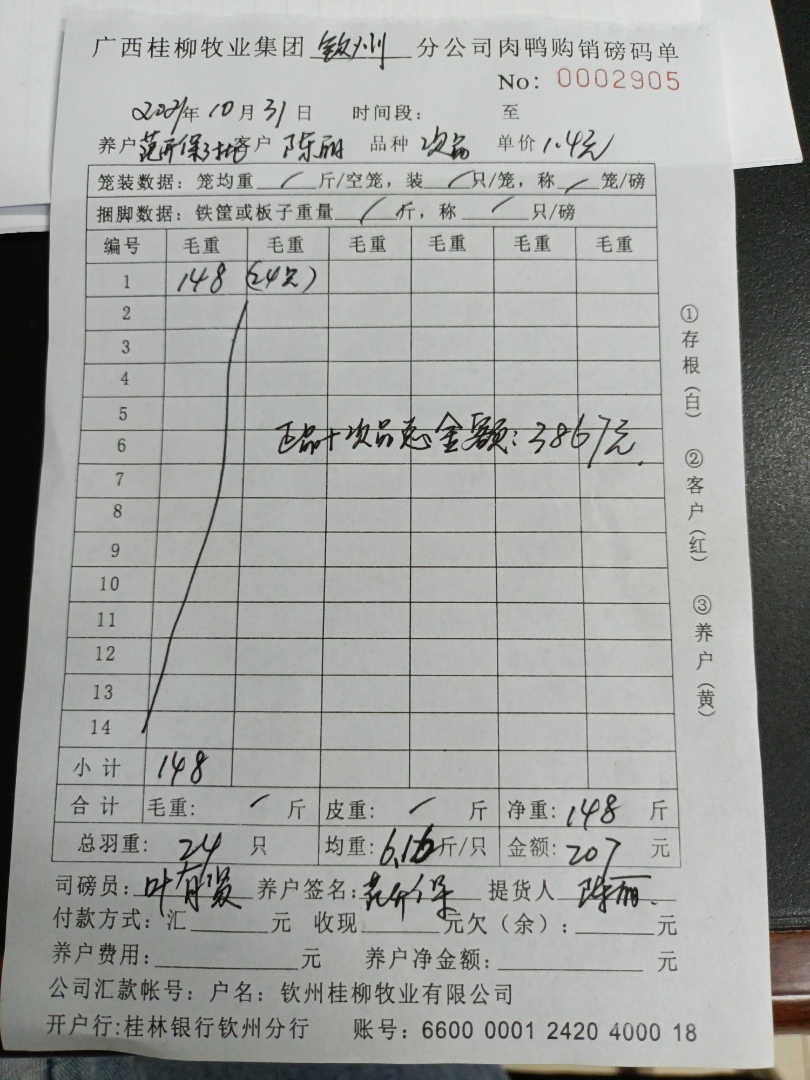 广西桂柳牧业集团 钦州 分公司肉鸭购销磅码单
No: 0002905
2021年 10 月 31 日 时间段: 至
养户 客户 陈丽 品种 次品 单价 1.4元
笼装数据: 笼均重 / 斤/空笼, 装 / 只/笼, 称 / 笼/磅
捆脚数据: 铁筐或板子重量 / 斤, 称 / 只/磅
编号 毛重 毛重 毛重 毛重 毛重 毛重
1 148 (24只)
2
3
4
5
正品+次品总金额: 3867元.
6
7
8
9
10
11
12
13
14
小计 148
合计 毛重: / 斤 皮重: / 斤 净重: 148 斤
总羽重: 24 只 均重: 6.16 斤/只 金额: 207 元
司磅员: 叶 养户签名: 提货人 陈丽.
付款方式: 汇 元 收现 元欠(余): 元
养户费用: 元 养户净金额: 元
公司汇款帐号: 户名: 钦州桂柳牧业有限公司
开户行:桂林银行钦州分行 账号: 6600 0001 2420 4000 18
①存根(白) ②客户(红) ③养户(黄)